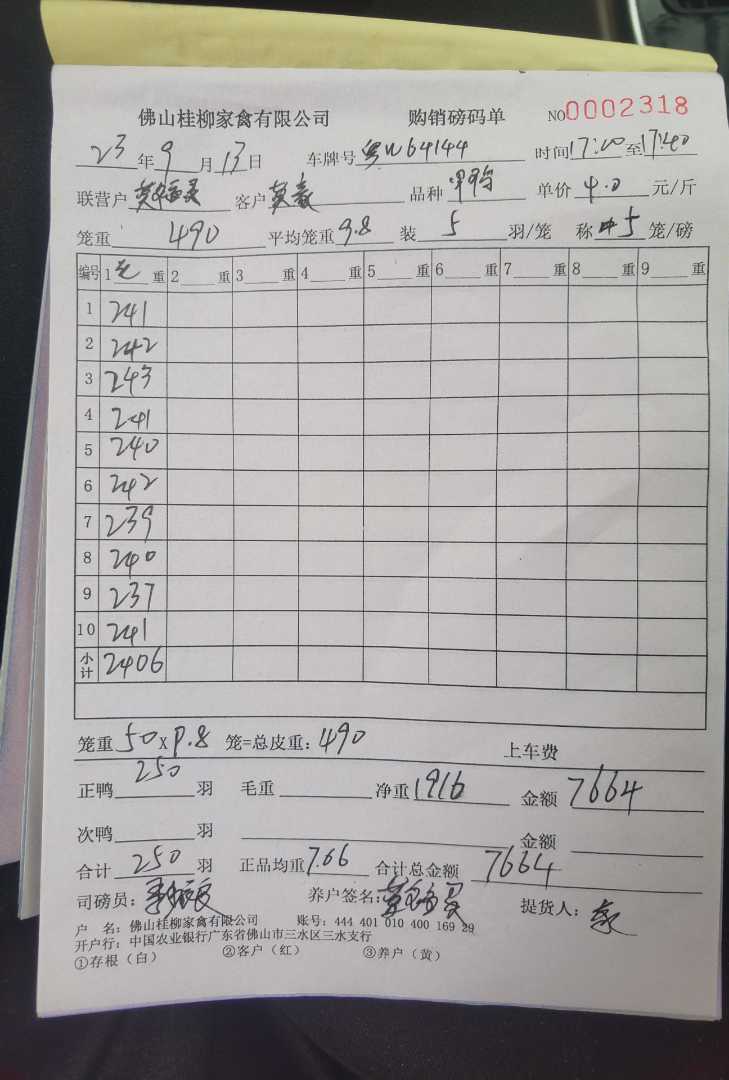 佛山桂柳家禽有限公司 购销磅码单 NO0002318
23年9月13日 车牌号粤W64144 时间17:20至17:40
联营户 客户莫 品种 单价4.0元/斤
笼重490 平均笼重9.8 装5羽/笼 称5笼/磅
编号 1 重 2 重 3 重 4 重 5 重 6 重 7 重 8 重 9 重
1 241
2 242
3 243
4 241
5 240
6 242
7 239
8 240
9 237
10 241
小计 2406
笼重50X9.8 笼=总皮重:490 上车费
正鸭250羽 毛重 净重1916 金额7664
次鸭 羽 金额
合计250羽 正品均重7.66 合计总金额7664
司磅员: 养户签名: 提货人:
户 名:佛山桂柳家禽有限公司 账号:444 401 010 400 169 29
开户行:中国农业银行广东省佛山市三水区三水支行
①存根(白) ②客户(红) ③养户(黄)